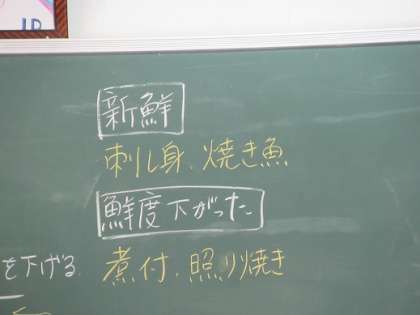 新鮮
刺し身、焼き魚
鮮度下がった
を下げる
煮付、照り焼き